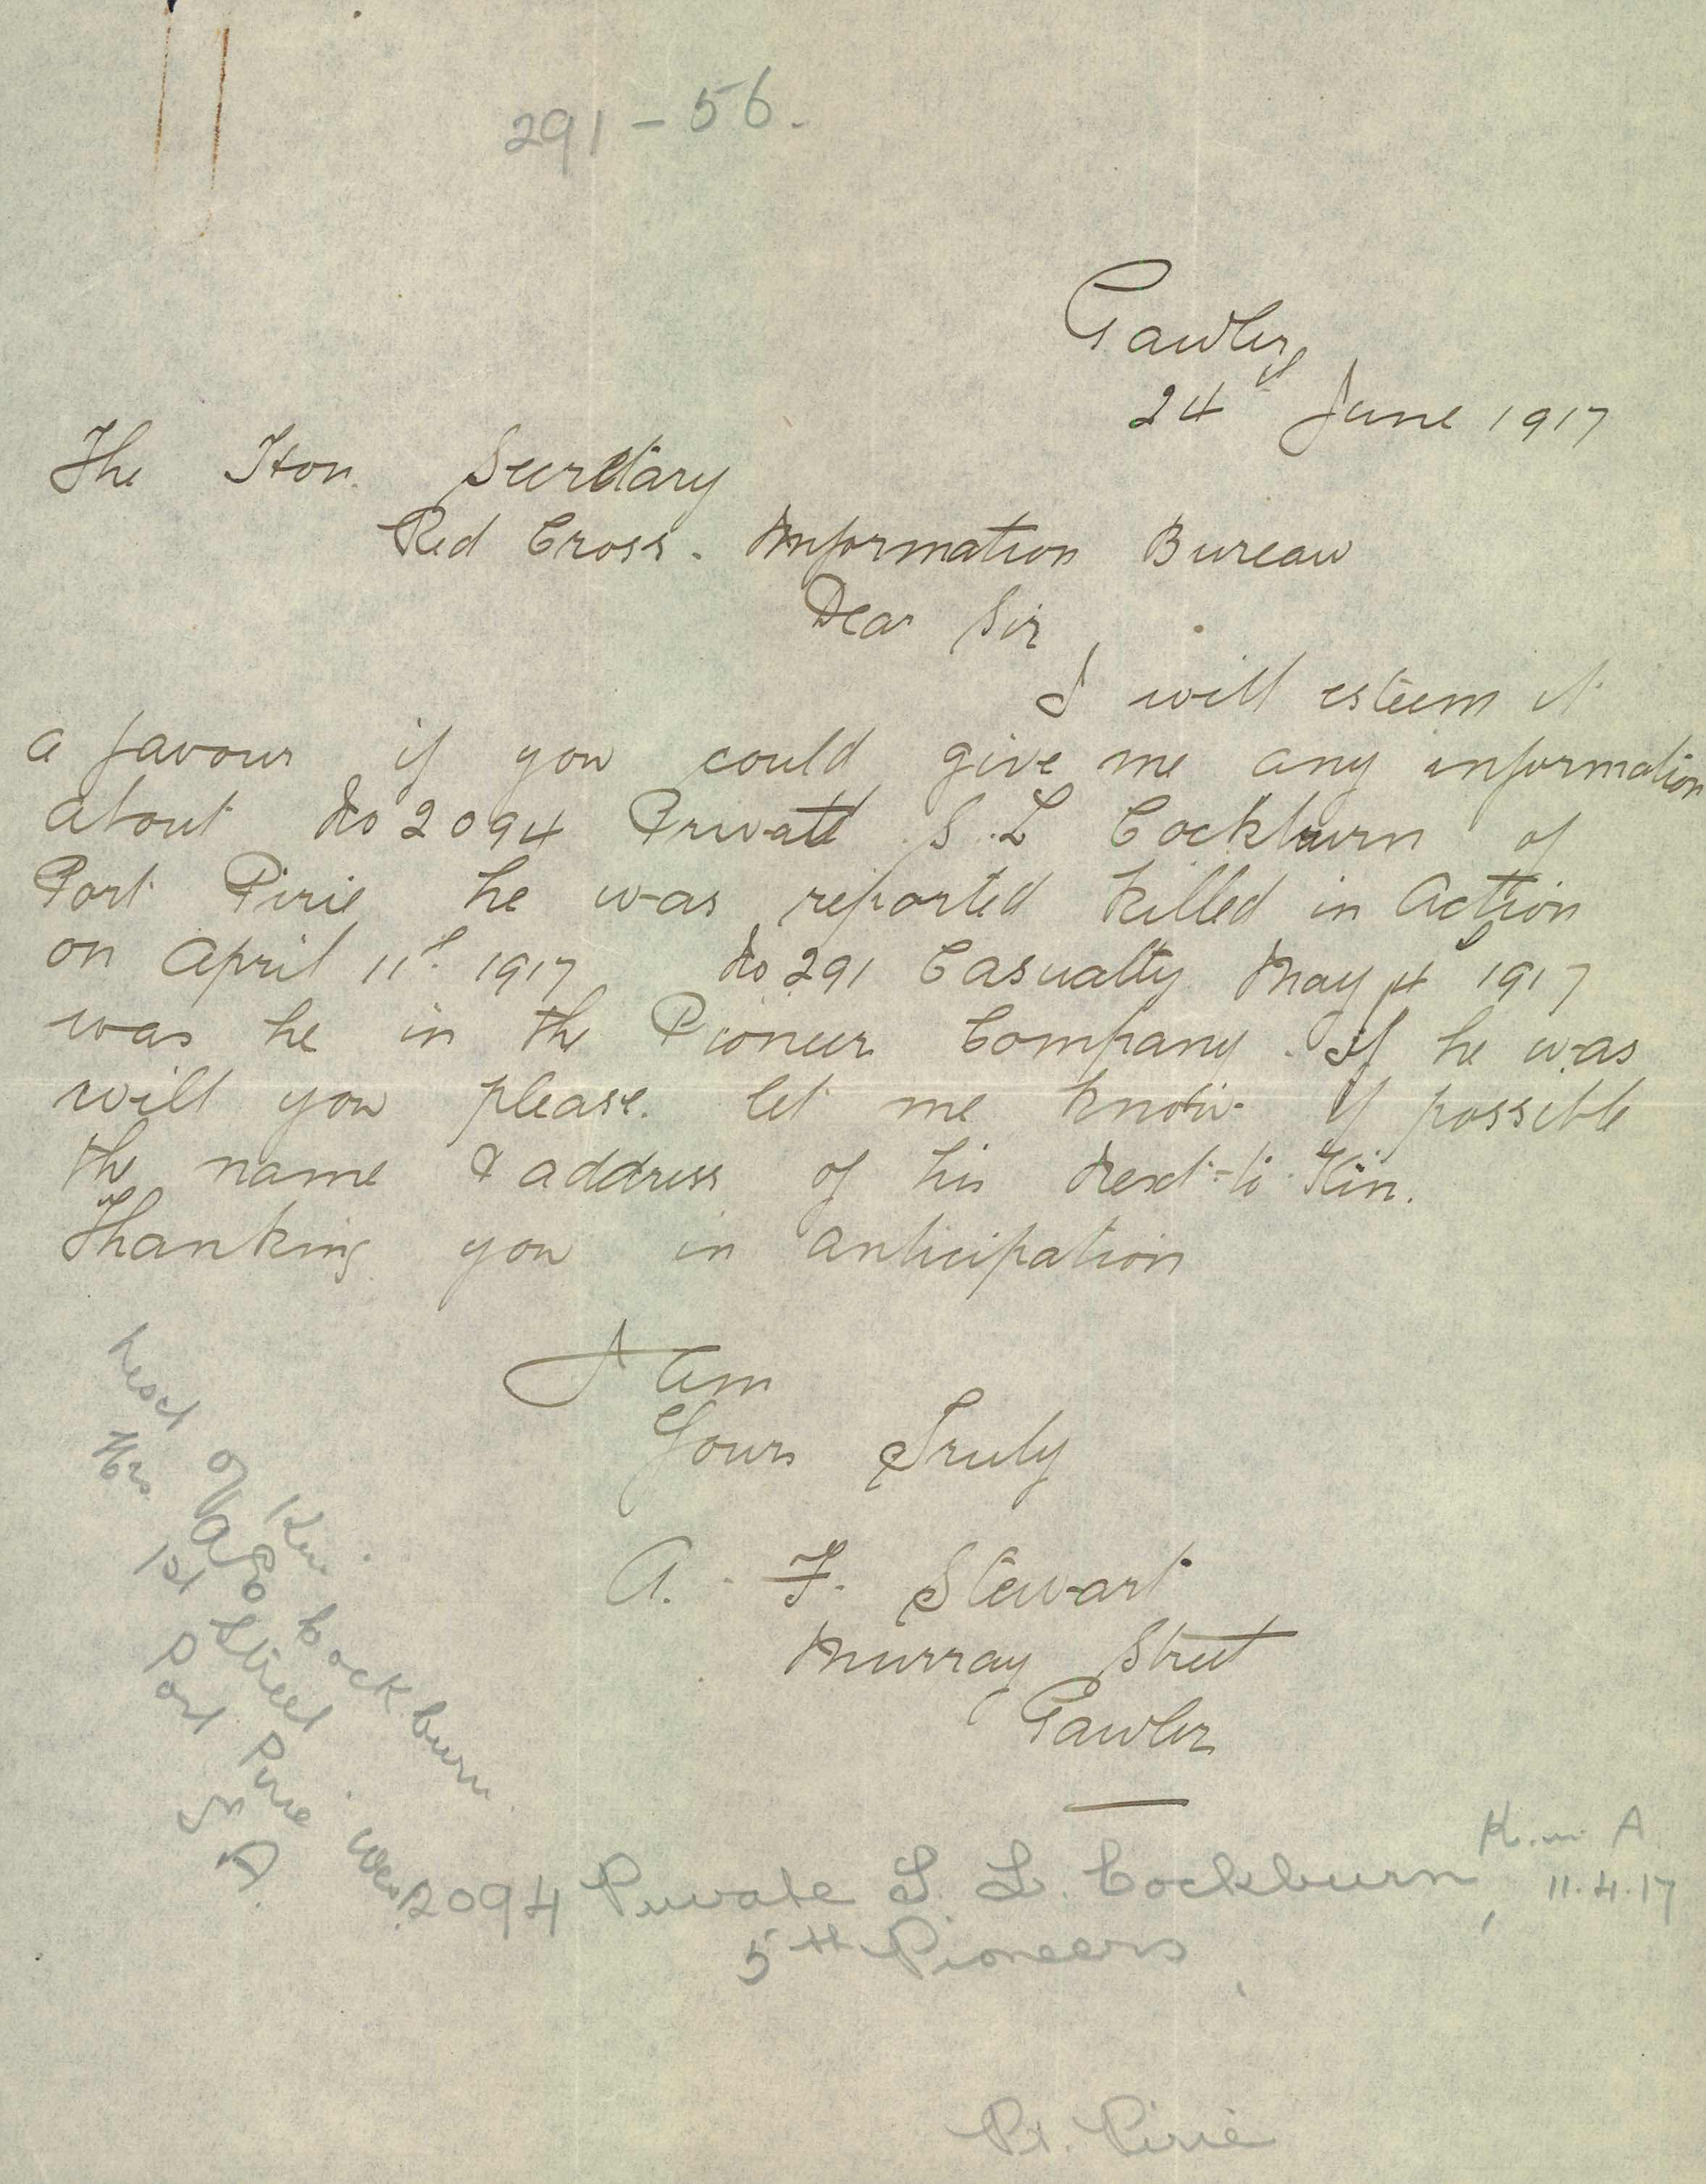 291-56.
Gawler,
24 June 1917
The Hon. Secretary
Red Cross. Information Bureau
Dear Sir,
I will esteem it
a favour if you could give me any information
about No 2094 Private S. L Cockburn of
Port Pirie he was reported killed in Action
on April 11th 1917 No 291 Casualty May 4th 1917
was he in the Pioneer Company. If he was
will you please. let me know if possible
the name & address of his Next-to-Kin.
Thanking you in anticipation
I am
Yours Truly
A. F. Stewart
Murray Street
Gawler
next of Kin.
Mrs Cockburn.
1st Street
Port Pirie West.
S A.
2094 Private S. L. Cockburn, K. in A
11.4.17
5th Pioneers
Pt. Pirie